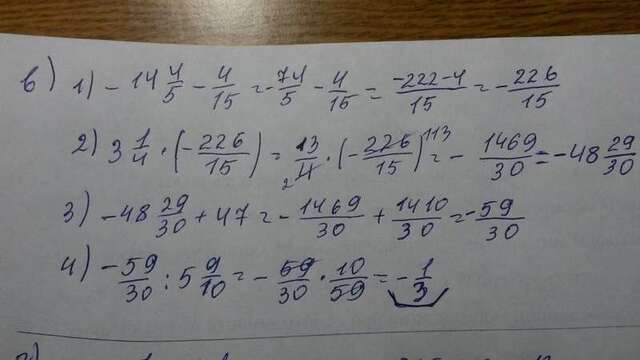 в) 1) - 14 4/5 - 4/15 = - 74/5 - 4/15 = -222-4/15 = - 226/15
2) 3 1/4 · (- 226/15) = 13/4 2 · (- 226/15) 113 = - 1469/30 = - 48 29/30
3) - 48 29/30 + 47 = - 1469/30 + 1410/30 = - 59/30
4) - 59/30 : 5 9/10 = - 59/30 · 10/59 = - 1/3